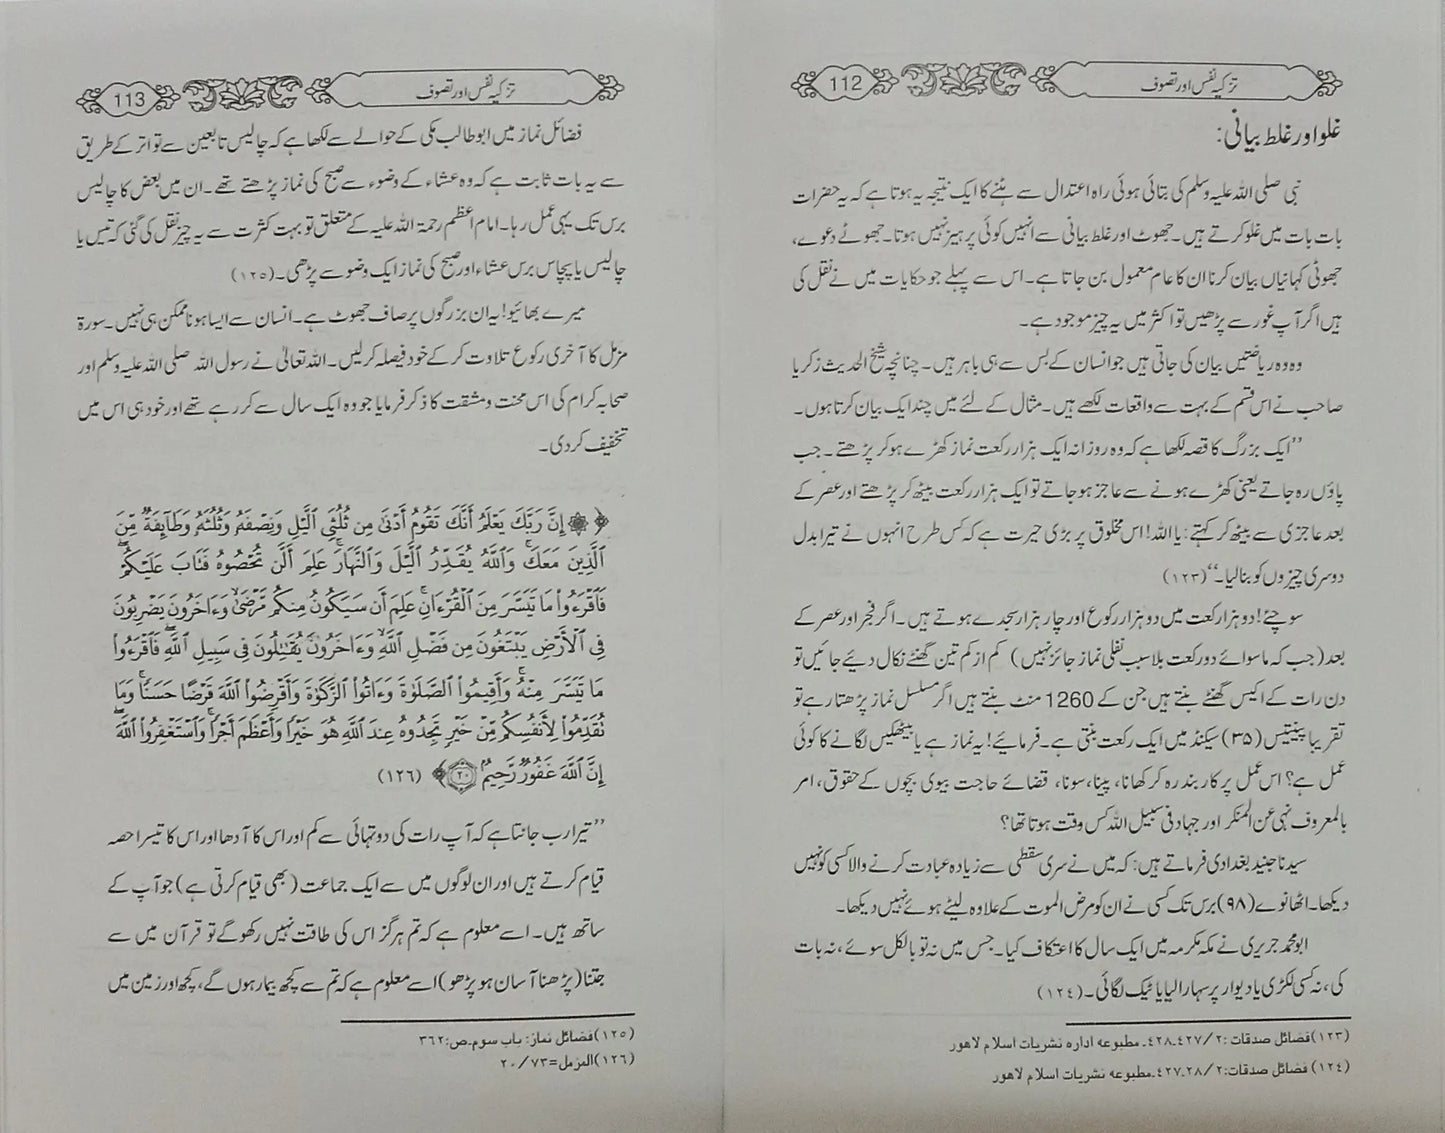 تزکیہ نفس اور تصوف
112
غلو اور غلط بیانی:
نبی صلی اللہ علیہ وسلم کی بتائی ہوئی راہ اعتدال سے ہٹنے کا ایک نتیجہ یہ ہوتا ہے کہ یہ حضرات
بات بات میں غلو کرتے ہیں۔ جھوٹ اور غلط بیانی سے انہیں کوئی پرہیز نہیں ہوتا۔ جھوٹے دعوے،
جھوٹی کہانیاں بیان کرنا ان کا عام معمول بن جاتا ہے۔ اس سے پہلے جو حکایات میں نے نقل کی
ہیں اگر آپ غور سے پڑھیں تو اکثر میں یہ چیز موجود ہے۔
وہ وہ ریاضتیں بیان کی جاتی ہیں جو انسان کے بس سے ہی باہر ہیں۔ چنانچہ شیخ الحدیث زکریا
صاحب نے اس قسم کے بہت سے واقعات لکھے ہیں۔ مثال کے لئے میں چند ایک بیان کرتا ہوں۔
’’ایک بزرگ کا قصہ لکھا ہے کہ وہ روزانہ ایک ہزار رکعت نماز کھڑے ہو کر پڑھتے۔ جب
پاؤں رہ جاتے یعنی کھڑے ہونے سے عاجز ہو جاتے تو ایک ہزار رکعت بیٹھ کر پڑھتے اور عصر کے
بعد عاجزی سے بیٹھ کر کہتے: یا اللہ! اس مخلوق پر بڑی حیرت ہے کہ کس طرح انہوں نے تیرا بدل
دوسری چیزوں کو بنا لیا۔‘‘ (۱۲۳)
سوچئے! دو ہزار رکعت میں دو ہزار رکوع اور چار ہزار سجدے ہوتے ہیں۔ اگر فجر اور عصر کے
بعد (جب کہ ماسوائے دو رکعت بلا سبب نفلی نماز جائز نہیں) کم از کم تین گھنٹے نکال دیئے جائیں تو
دن رات کے اکیس گھنٹے بنتے ہیں جن کے 1260 منٹ بنتے ہیں اگر مسلسل نماز پڑھتا رہے تو
تقریبا پینتیس (۳۵) سیکنڈ میں ایک رکعت بنتی ہے۔ فرمائیے! یہ نماز ہے یا بیٹھکیں لگانے کا کوئی
عمل ہے؟ اس عمل پر کاربند رہ کر کھانا، پینا، سونا، قضائے حاجت بیوی بچوں کے حقوق، امر
بالمعروف نہی عن المنکر اور جہاد فی سبیل اللہ کس وقت ہوتا تھا؟
سیدنا جنید بغدادی فرماتے ہیں: کہ میں نے سری سقطی سے زیادہ عبادت کرنے والا کسی کو نہیں
دیکھا۔ اٹھانوے (۹۸) برس تک کسی نے ان کو مرض الموت کے علاوہ لیٹے ہوئے نہیں دیکھا۔
ابو محمد جریری نے مکہ مکرمہ میں ایک سال کا اعتکاف کیا۔ جس میں نہ تو بالکل سوئے، نہ بات
کی، نہ کسی لکڑی یا دیوار پر سہارا لیا یا ٹیک لگائی۔ (۱۲۴)
(۱۲۳) فضائل صدقات: ۲/ ۴۲۷۔۴۲۸۔ مطبوعہ ادارہ نشریات اسلام لاہور
(۱۲۴) فضائل صدقات: ۲/ ۲۸۔۴۲۷۔ مطبوعہ نشریات اسلام لاہور
تزکیہ نفس اور تصوف
113
فضائل نماز میں ابوطالب مکی کے حوالے سے لکھا ہے کہ چالیس تابعین سے تواتر کے طریق
سے یہ بات ثابت ہے کہ وہ عشاء کے وضوء سے صبح کی نماز پڑھتے تھے۔ ان میں بعض کا چالیس
برس تک یہی عمل رہا۔ امام اعظم رحمۃ اللہ علیہ کے متعلق تو بہت کثرت سے یہ چیز نقل کی گئی کہ تیس یا
چالیس یا پچاس برس عشاء اور صبح کی نماز ایک وضو سے پڑھی۔ (۱۲۵)
میرے بھائیو! یہ ان بزرگوں پر صاف جھوٹ ہے۔ انسان سے ایسا ہونا ممکن ہی نہیں۔ سورۃ
مزمل کا آخری رکوع تلاوت کر کے خود فیصلہ کر لیں۔ اللہ تعالیٰ نے رسول اللہ صلی اللہ علیہ وسلم اور
صحابہ کرام کی اس محنت و مشقت کا ذکر فرمایا جو وہ ایک سال سے کر رہے تھے اور خود ہی اس میں
تخفیف کر دی۔
﴿۞ إِنَّ رَبَّكَ يَعْلَمُ أَنَّكَ تَقُومُ أَدْنَىٰ مِن ثُلُثَىِ ٱلَّيْلِ وَنِصْفَهُۥ وَثُلُثَهُۥ وَطَآئِفَةٌ مِّنَ
ٱلَّذِينَ مَعَكَ ۚ وَٱللَّهُ يُقَدِّرُ ٱلَّيْلَ وَٱلنَّهَارَ ۚ عَلِمَ أَن لَّن تُحْصُوهُ فَتَابَ عَلَيْكُمْ ۖ
فَٱقْرَءُوا۟ مَا تَيَسَّرَ مِنَ ٱلْقُرْءَانِ ۚ عَلِمَ أَن سَيَكُونُ مِنكُم مَّرْضَىٰ ۙ وَءَاخَرُونَ يَضْرِبُونَ
فِى ٱلْأَرْضِ يَبْتَغُونَ مِن فَضْلِ ٱللَّهِ ۙ وَءَاخَرُونَ يُقَٰتِلُونَ فِى سَبِيلِ ٱللَّهِ ۖ فَٱقْرَءُوا۟
مَا تَيَسَّرَ مِنْهُ ۚ وَأَقِيمُوا۟ ٱلصَّلَوٰةَ وَءَاتُوا۟ ٱلزَّكَوٰةَ وَأَقْرِضُوا۟ ٱللَّهَ قَرْضًا حَسَنًا ۚ وَمَا
تُقَدِّمُوا۟ لِأَنفُسِكُم مِّنْ خَيْرٍ تَجِدُوهُ عِندَ ٱللَّهِ هُوَ خَيْرًا وَأَعْظَمَ أَجْرًا ۚ وَٱسْتَغْفِرُوا۟ ٱللَّهَ ۖ
إِنَّ ٱللَّهَ غَفُورٌ رَّحِيمٌۢ ۝٢٠﴾ (۱۲۶)
’’تیرا رب جانتا ہے کہ آپ رات کی دو تہائی سے کم اور اس کا آدھا اور اس کا تیسرا حصہ
قیام کرتے ہیں اور ان لوگوں میں سے ایک جماعت (بھی قیام کرتی ہے) جو آپ کے
ساتھ ہیں۔ اسے معلوم ہے کہ تم ہرگز اس کی طاقت نہیں رکھو گے تو قرآن میں سے
جتنا (پڑھنا آسان ہو پڑھو) اسے معلوم ہے کہ تم سے کچھ بیمار ہوں گے، کچھ اور زمین میں
(۱۲۵) فضائل نماز: باب سوم۔ص: ۳۶۲
(۱۲۶) المزمل=۷۳/ ۲۰